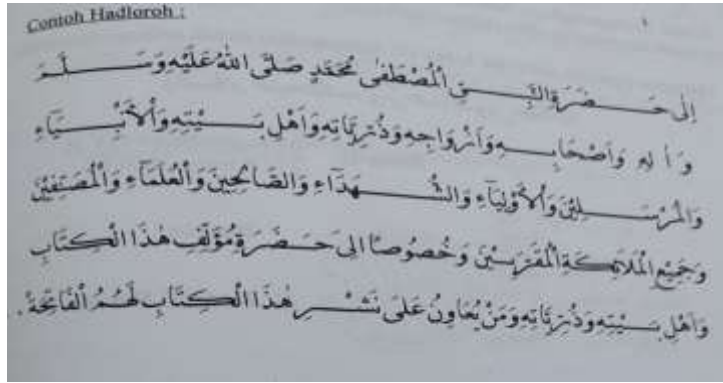 Contoh Hadloroh :
إِلَى حَضْرَةِ النَّبِيِّ الْمُصْطَفَى مُحَمَّدٍ صَلَّى اللهُ عَلَيْهِ وَسَلَّمَ
وَأٰلِهِ وَاَصْحَابِهِ وَاَزْوَاجِهِ وَذُرِّيَّاتِهِ وَاَهْلِ بَيْتِهِ وَالْاَنْبِيَآءِ
وَالْمُرْسَلِيْنَ وَالْاَوْلِيَآءِ وَالشُّهَدَآءِ وَالصَّالِحِيْنَ وَالْعُلَمَآءِ وَالْمُصَنِّفِيْنَ
وَجَمِيْعِ الْمَلَائِكَةِ الْمُقَرَّبِيْنَ وَخُصُوْصًا اِلَى حَضْرَةِ مُؤَلِّفِ هٰذَا الْكِتَابِ
وَاَهْلِ بَيْتِهِ وَذُرِّيَّاتِهِ وَمَنْ يُعَاوِنُ عَلَى نَشْرِ هٰذَا الْكِتَابِ لَهُمُ الْفَاتِحَةْ .